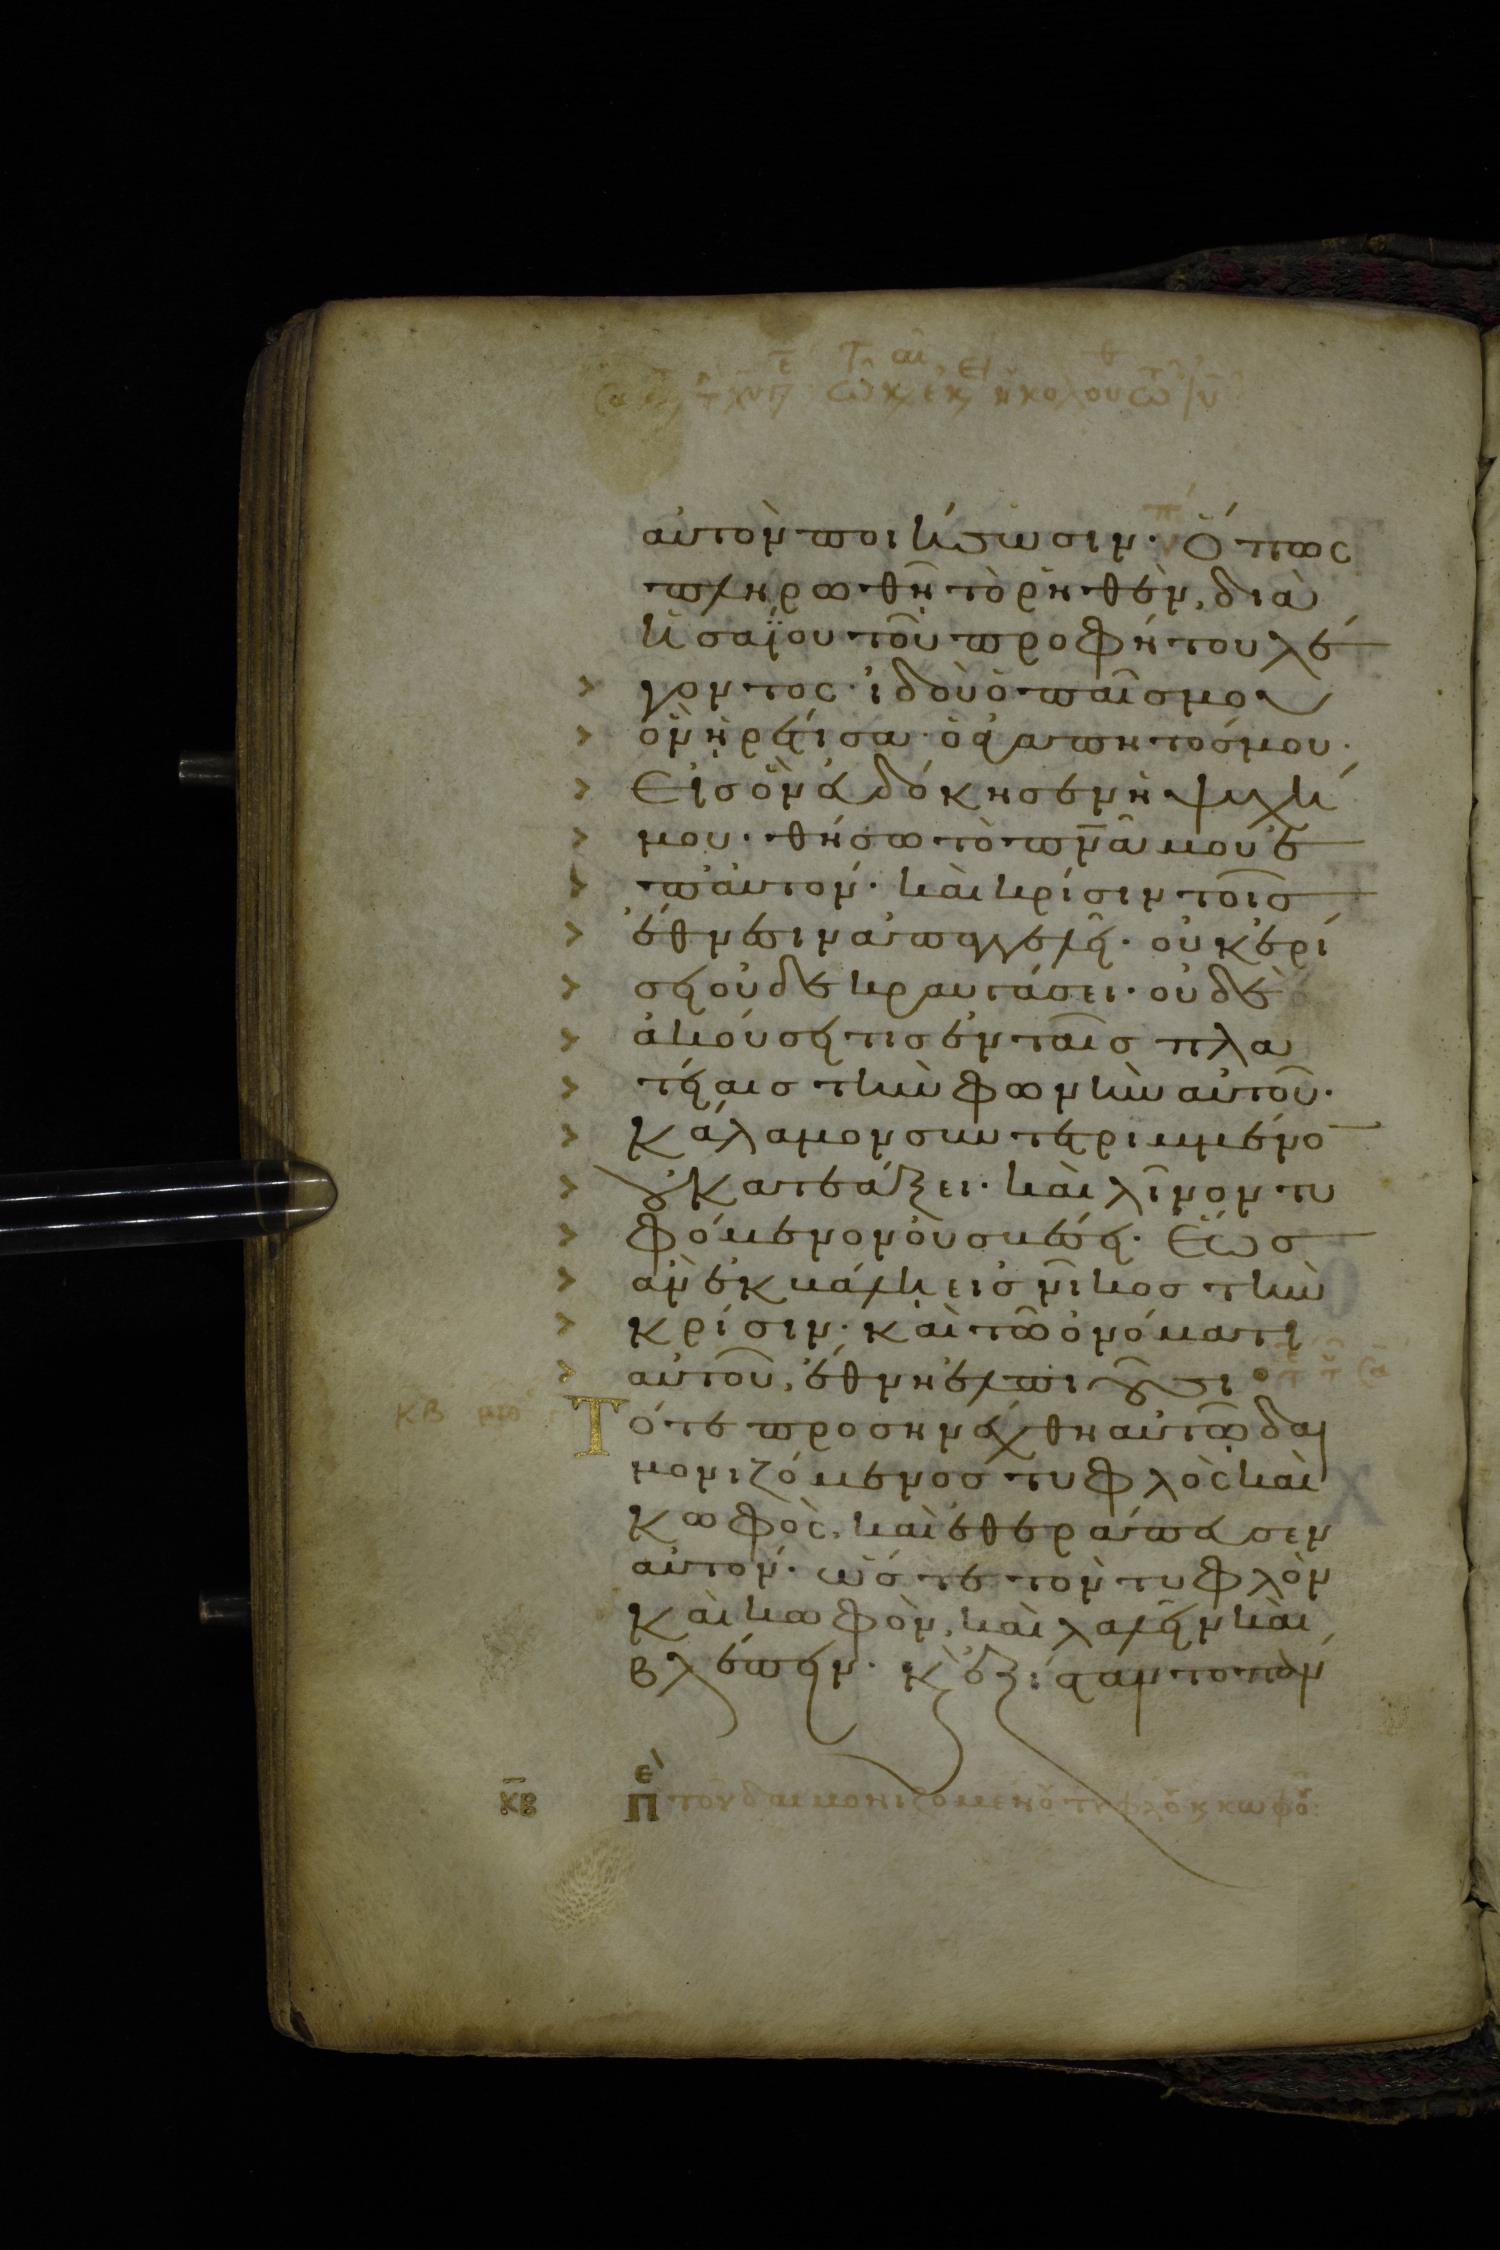 αὐτὸν ποιήσωσιν· Ὅπως
πληρωθῆ τὸ ῥηθὲν, διὰ
ἡσαΐου τοῦ προφήτου λέ
γοντος· ἰδοὺ ὁ παῖσ μου
ὃν ἡρέτισα· ὁ ἀγαπητόσ μου·
Εἰσ ὃν εὐδόκησεν ἡ ψυχή
μου· θήσω τὸ πνᾶ μου ἐ
π' αὐτόν· καὶ κρίσιν τοῖσ
ἔθνεσιν ἀπαγγελεῖ· οὐκ ἐρί
σει οὐδὲ κραυγάσει· οὐδὲ
ἀκούσει τισ ἐν ταῖσ πλα
τείαισ τὴν φωνὴν αὐτοῦ·
Κάλαμον συντετριμμένο
οὐ κατεάξει· καὶ λῖνον τυ
φόμενον οὐ σβέσει· Ἕωσ
ἂν ἐκβάλη εἰσ νῖκοσ τὴν
κρίσιν· καὶ τῶ ὀνόματι
αὐτοῦ, ἔθνη ἐλπιοῦσι
Τότε προσηνέχθη αὐτῶ δαι
μονιζόμενοσ τυφλὸς καὶ
κωφὸς, καὶ ἐθεράπευσεν
αὐτόν· ὥστε τὸν τυφλὸν
καὶ κωφὸν, καὶ λαλεῖν καὶ
βλέπειν· κ ἐξίσταντο πάν
κβ Πε τοῦ δαιμονιζομένου τυφλοῦ κ κωφοῦ: